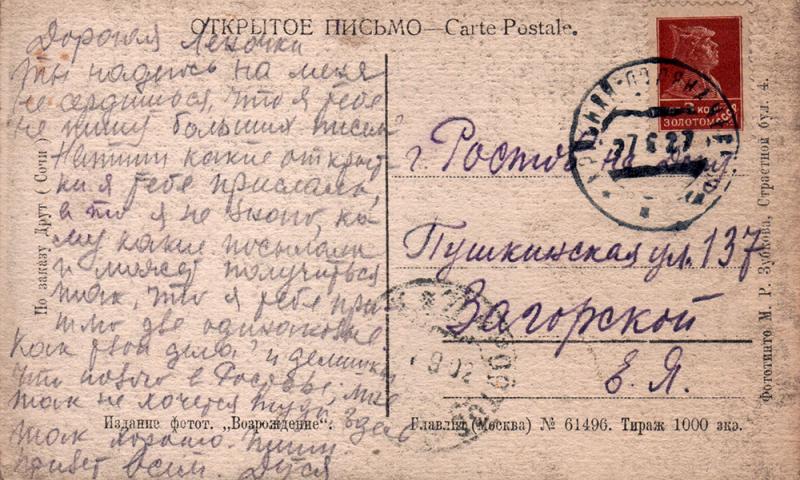 ОТКРЫТОЕ ПИСЬМО—Carte Postale.
Дорогая Леночка
ты надеюсь на меня
не сердишься, что я тебе
не пишу больших писем
Напиши какие открыт
ки я тебе прислала,
а то я не знаю, ко-
му какие посылала
и может получиться
так, что я тебе при
шлю две одинаковые
Как твои дела и делишки
Что нового в Ростове, мне
так не хочется туда, здесь
так хорошо. Пиши.
Привет всем. Дуся
По заказу Друт (Сочи)
Издание фотот. „Возрождение“.
КОП.
ЗОЛОТОМ
27 6 27
г. Ростов на Дону.
Пушкинская ул. 137
Загорской
Е. Я.
Главлит (Москва) № 61496. Тираж 1000 экз.
Фототинто М. Р. Зубкова, Страстной бул. 4.